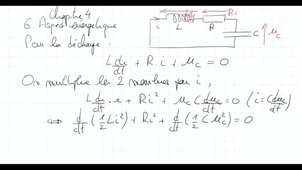 chapitre 4
6. Aspect énergétique
Pour la décharge :
L di/dt + R.i + u_c = 0
On multiplie les 2 membres par i,
L di/dt . i + Ri² + u_c C du_c/dt = 0 (i = C du_c/dt)
⇔ d/dt (1/2 Li²) + Ri² + d/dt (1/2 C u_c²) = 0
i L R Ri C u_c